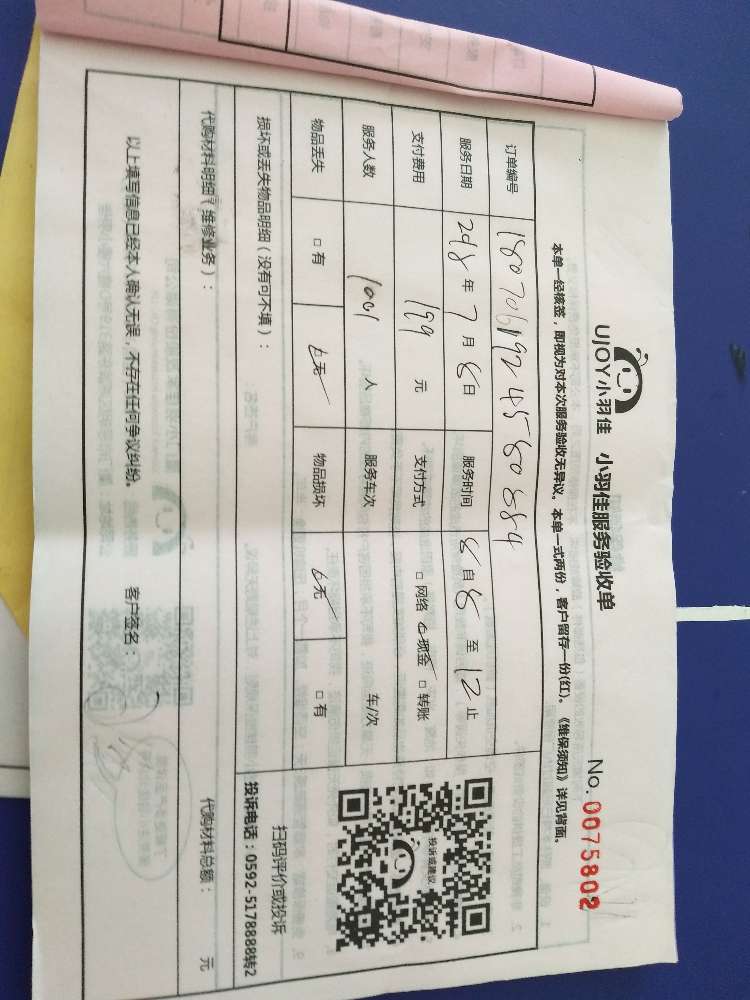 UJOY小羽佳 小羽佳服务验收单
No.0075802
本单一经核签，即视为对本次服务验收无异议。本单一式两份，客户留存一份(红)。《维保须知》详见背面。
订单编号
服务日期 2018年7月8日 服务时间 8日8至12止
支付费用 199 元 支付方式 □网络 ☑现金 □转账
服务人数 人 服务车次 车/次
物品丢失 □有 ☑无 物品损坏 ☑无 □有
投诉或建议
扫码评价或投诉
投诉电话：0592-5178888转2
损坏或丢失物品明细（没有可不填）：
代购材料明细（维修业务）：
代购材料总额： 元
以上填写信息已经本人确认无误，不存在任何争议纠纷。 客户签名：